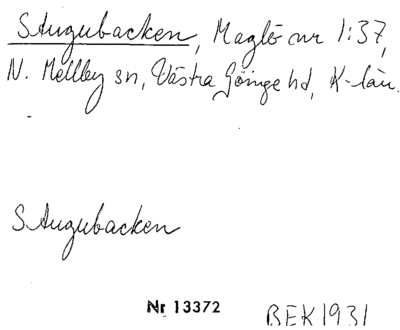 Stugubacken, Maglö nr 1:37,
N. Mellby sn, Västra Göinge hd, K-län.
Stugubacken
Nr 13372
BEK1931